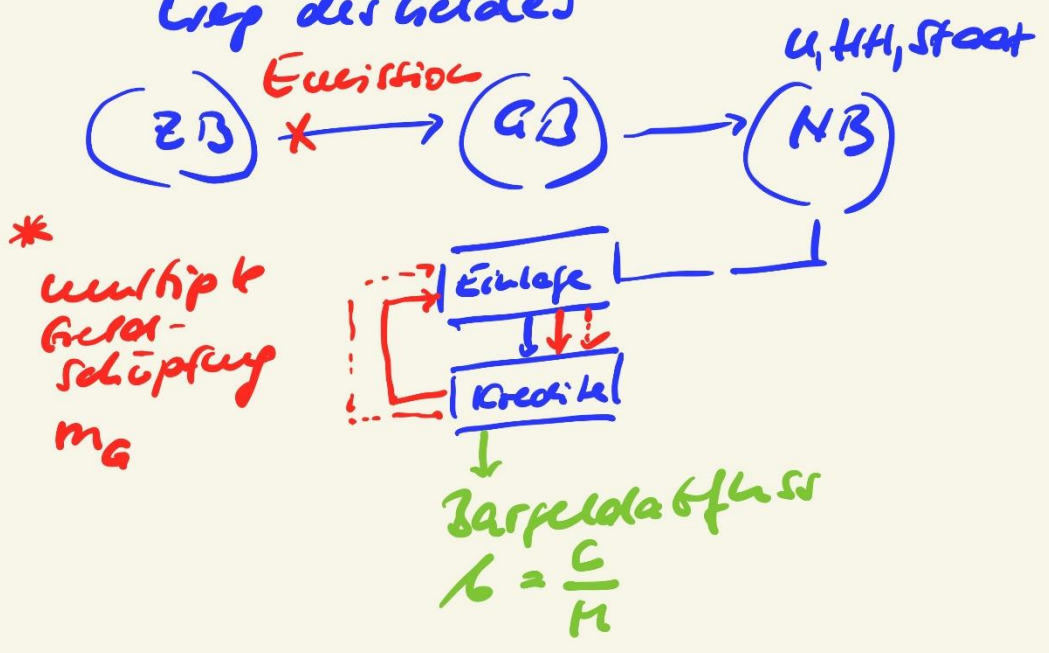 des Geldes
U, HH, Staat
Emission
ZB
GB
NB
*
multiple
Geld-
schöpfung
mG
Einlage
Kredite
Bargeldabfluss
b = C/M